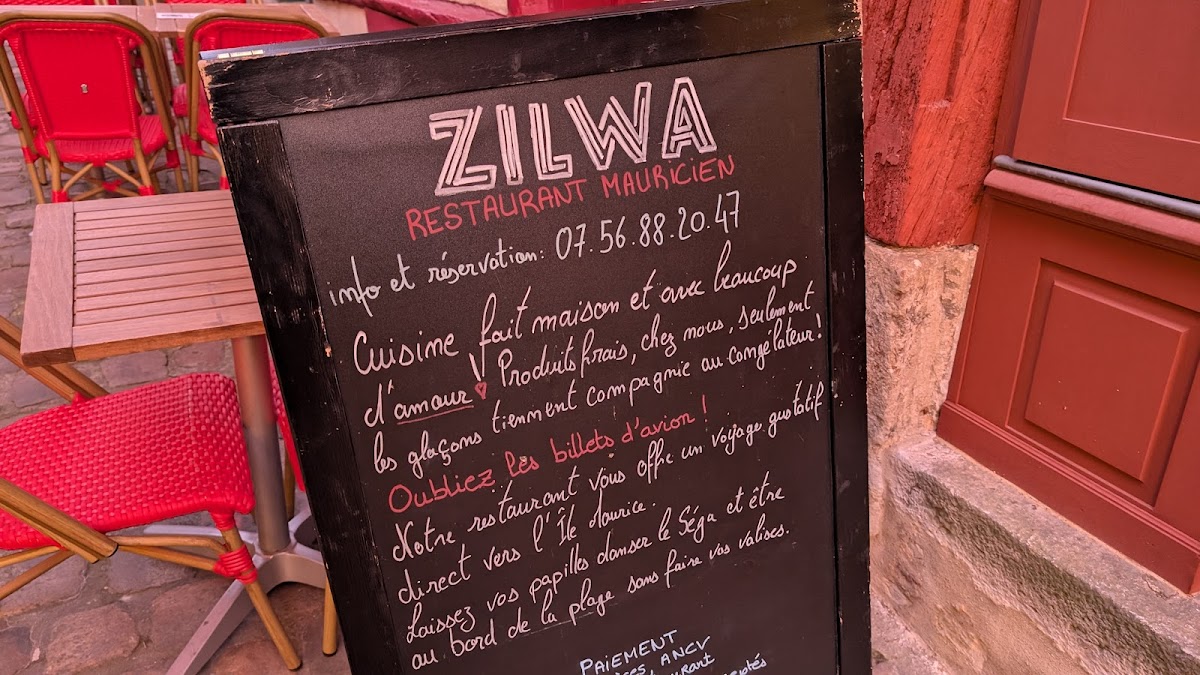 ZILWA
RESTAURANT MAURICIEN
info et réservation: 07.56.88.20.47
Cuisine fait maison et avec beaucoup
d'amour! Produits frais, chez nous, seulement
les glaçons tiennent compagnie au congélateur!
Oubliez les billets d'avion!
Notre restaurant vous offre un voyage gustatif
direct vers l'Île Maurice.
Laissez vos papilles danser le Séga et être
au bord de la plage sans faire vos valises.
PAIEMENT
ANCV